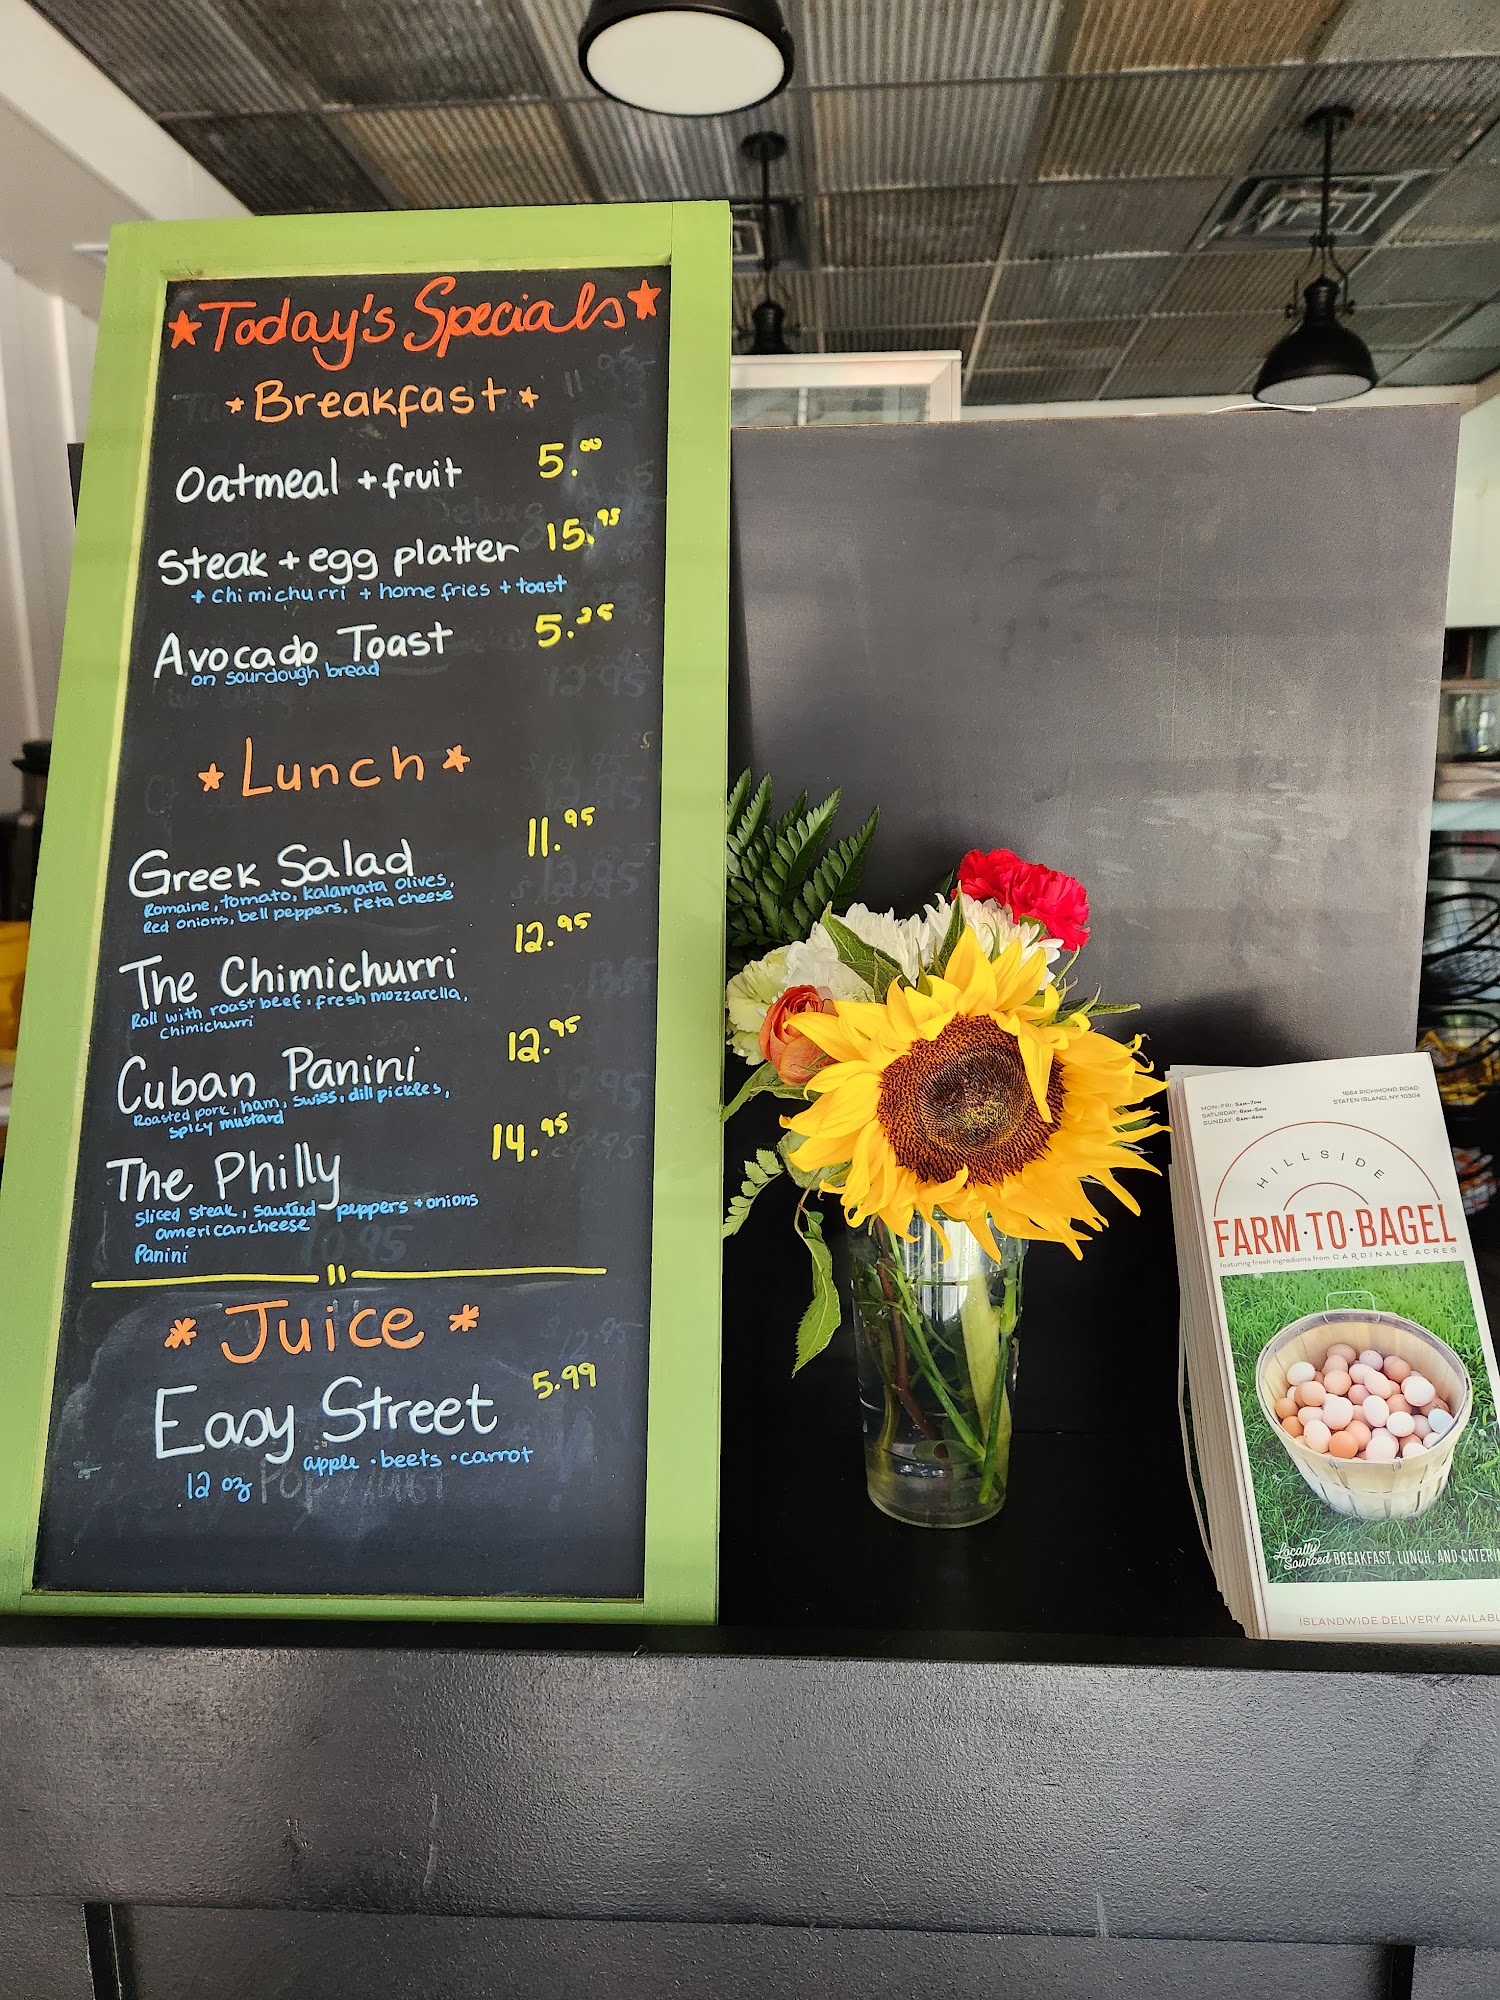 Today's Specials
Breakfast
Oatmeal + fruit 5.00
Steak + egg platter 15.95
+ Chimichurri + home fries + toast
Avocado Toast 5.25
on sourdough bread
Lunch
Greek Salad 11.95
Romaine, tomato, kalamata olives,
Red onions, bell peppers, feta cheese
The Chimichurri 12.95
Roll with roast beef, fresh mozzarella,
Chimichurri
Cuban Panini 12.95
Roasted pork, ham, swiss, dill pickles,
spicy mustard
The Philly 14.95
sliced steak, sauteed peppers + onions
american cheese
Panini
Juice
Easy Street 5.99
apple · beets · carrot
12 oz
MON-FRI: 5AM-7PM
SATURDAY: 6AM-5PM
SUNDAY: 6AM-4PM
1684 RICHMOND ROAD
STATEN ISLAND, NY 10304
HILLSIDE
FARM·TO·BAGEL
featuring fresh ingredients from CARDINALE ACRES
Locally
Sourced BREAKFAST, LUNCH, AND CATERIN
ISLANDWIDE DELIVERY AVAILAB